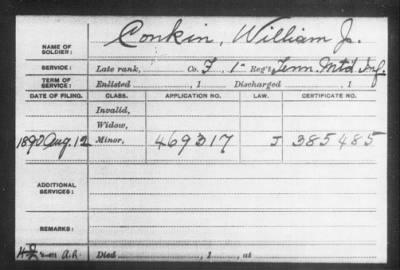 NAME OF SOLDIER: Conkin, William Jr.
SERVICE: Late rank, Co. F, 1- Reg't Tenn. Mtd Inf.
TERM OF SERVICE: Enlisted , 1 Discharged , 1
DATE OF FILING. CLASS. APPLICATION NO. LAW. CERTIFICATE NO.
Invalid,
Widow,
1890 Aug. 12 Minor, 469317 J 385485
ADDITIONAL SERVICES:
REMARKS:
Died , 1 , at